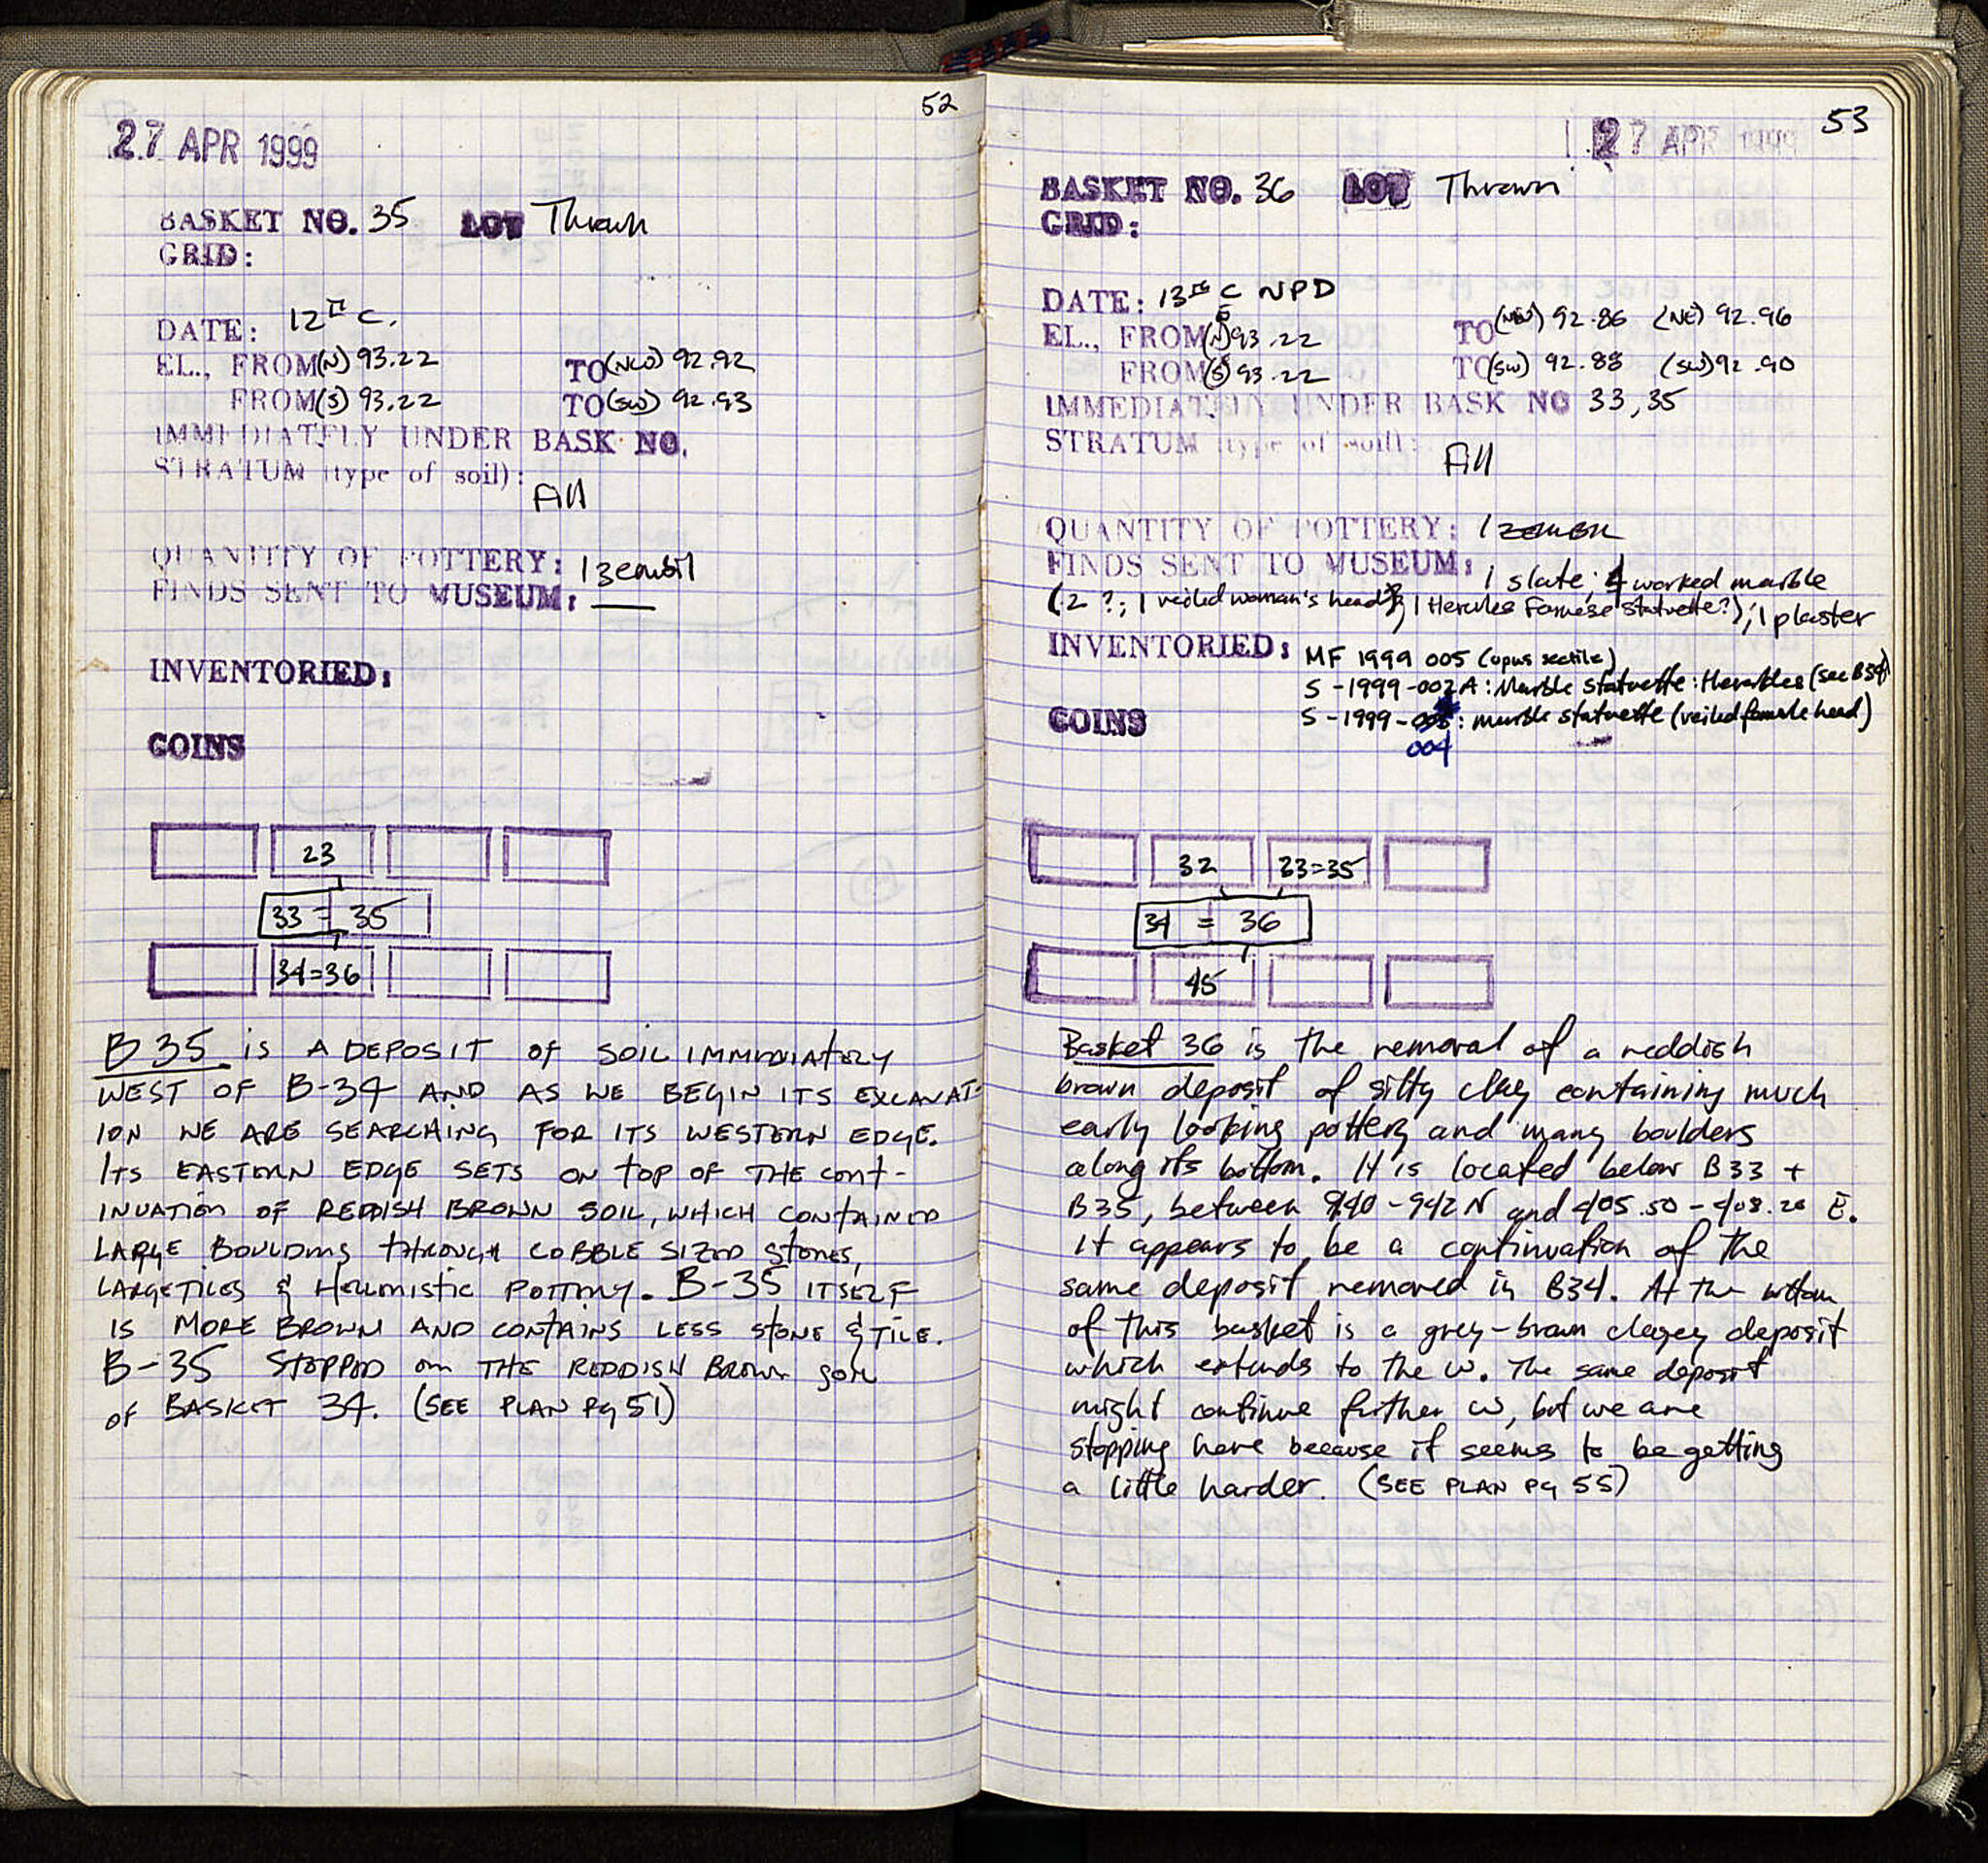 52
27 APR 1999
BASKET NO. 35 LOT Thrown
GRID:
DATE: 12th C.
EL., FROM (N) 93.22 TO (NW) 92.92
FROM (S) 93.22 TO (SW) 92.93
IMMEDIATELY UNDER BASK NO.
STRATUM (type of soil):
Fill
QUANTITY OF POTTERY: 1 zembil
FINDS SENT TO MUSEUM: —
INVENTORIED:
COINS
23
33 = 35
34=36
B35 is A DEPOSIT of SOIL IMMEDIATELY
WEST OF B-34 AND AS WE BEGIN ITS EXCAVAT-
ION WE ARE SEARCHING FOR ITS WESTERN EDGE.
ITS EASTERN EDGE SETS ON TOP OF THE CONT-
INUATION OF REDDISH BROWN SOIL, WHICH CONTAINED
LARGE BOULDERS THROUGH COBBLE SIZED STONES,
LARGE TILES & HELLENISTIC POTTERY. B-35 ITSELF
IS MORE BROWN AND CONTAINS LESS STONE & TILE.
B-35 STOPPED ON THE REDDISH BROWN SOIL
OF BASKET 34. (SEE PLAN Pg 51)
53
27 APR 1999
BASKET NO. 36 LOT Thrown
GRID:
DATE: 13th C NPD
EL., FROM 93.22 TO 92.86 (NE) 92.96
FROM 93.22 TO (SW) 92.88 (SW) 92.90
IMMEDIATELY UNDER BASK NO 33, 35
STRATUM (type of soil):
Fill
QUANTITY OF POTTERY: 1 zembil
FINDS SENT TO MUSEUM: 1 slate; 4 worked marble
(2 ?; 1 veiled woman's head; 1 Hercules Farnese statuette?); 1 plaster
INVENTORIED: MF 1999 005 (opus sectile)
S-1999-002A: Marble statuette: Herakles (see B34)
S-1999- : marble statuette (veiled female head)
004
COINS
32 33=35
34 = 36
45
Basket 36 is the removal of a reddish
brown deposit of silty clay containing much
early looking pottery and many boulders
along its bottom. It is located below B33 +
B35, between 940-942 N and 405.50-408.20 E.
It appears to be a continuation of the
same deposit removed in B34. At the bottom
of this basket is a grey-brown clayey deposit
which extends to the W. The same deposit
might continue further W, but we are
stopping here because it seems to be getting
a little harder. (SEE PLAN Pg 55)